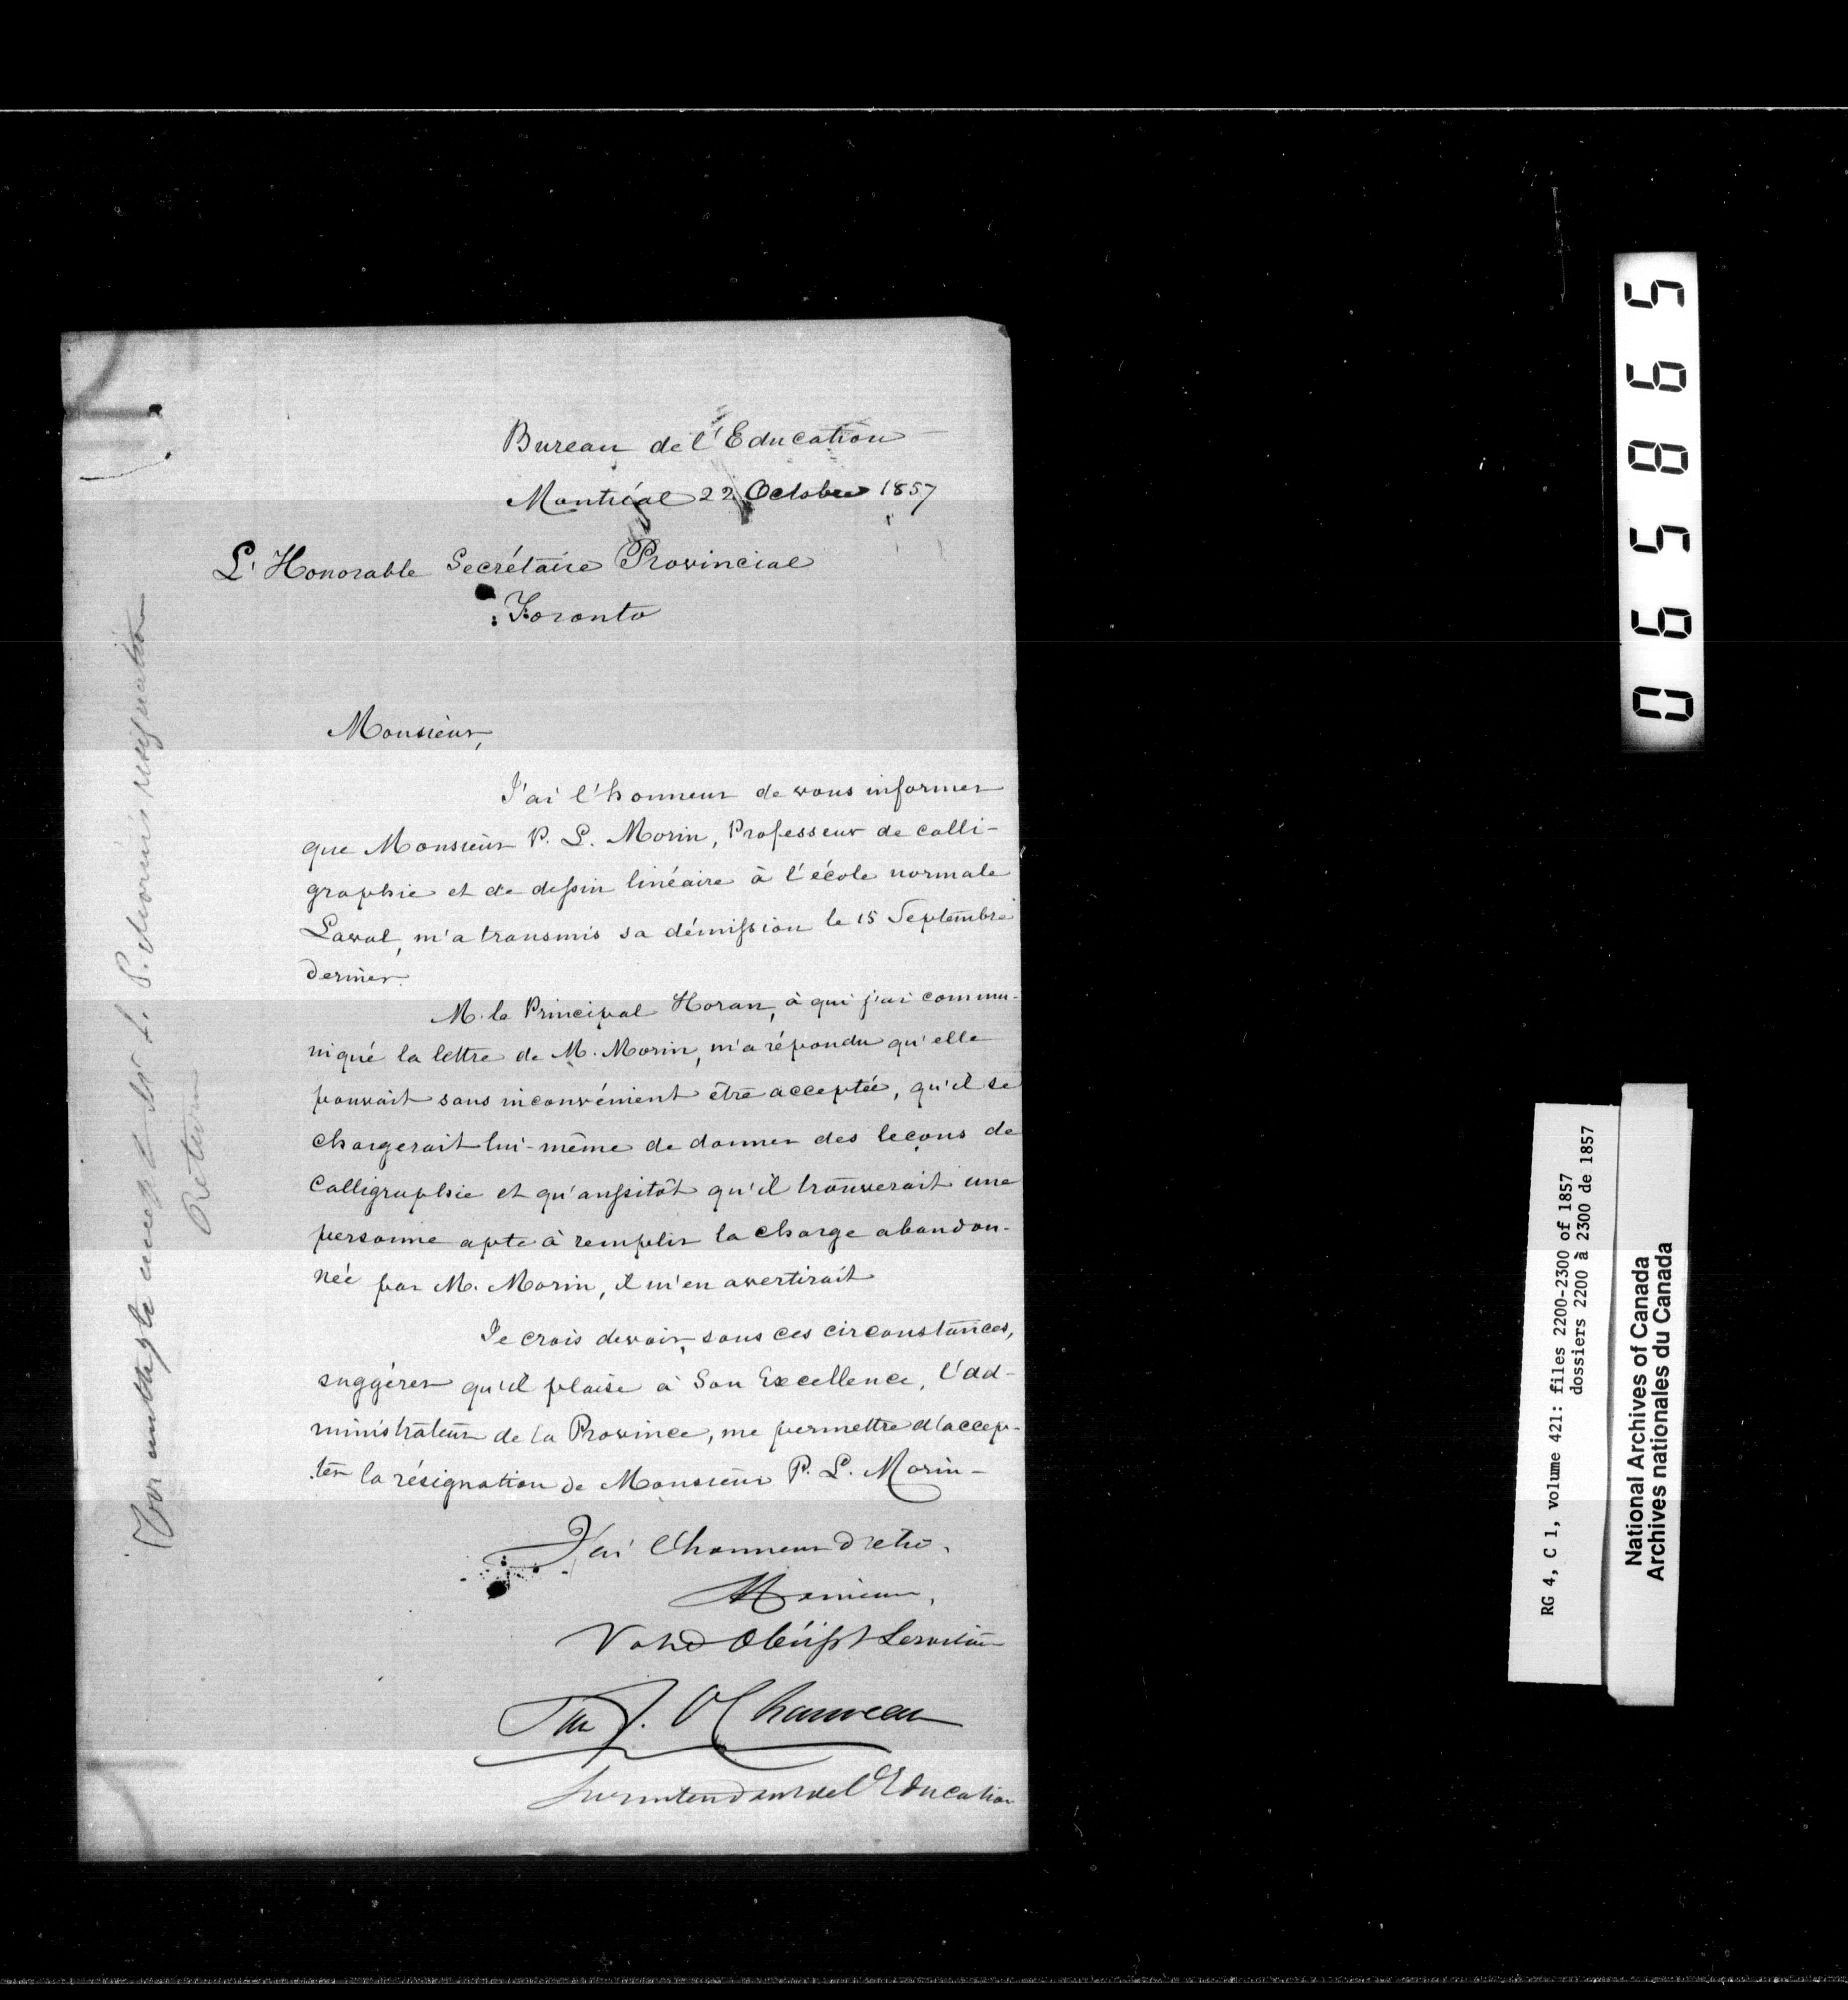 Bureau de l'Education
Montréal 22 Octobre 1857
L'Honorable Secrétaire Provincial
Toronto
Monsieur,
J'ai l'honneur de vous informer
que Monsieur P. L. Morin, Professeur de calli-
graphie et de dessin linéaire à l'école normale
Laval, m'a transmis sa démission le 15 Septembre
dernier.
M. le Principal Horan, à qui j'ai commu-
niqué la lettre de M. Morin, m'a répondu qu'elle
pouvait sans inconvénient être acceptée, qu'il se
chargerait lui-même de donner des leçons de
Calligraphie et qu'aussitôt qu'il trouverait une
personne apte à remplir la charge abandon-
née par M. Morin, il m'en avertirait
Je crois devoir, sous ces circonstances,
suggérer qu'il plaise à Son Excellence, l'ad-
ministrateur de la Province, me permettre d'accep-
ter la résignation de Monsieur P. L. Morin -
J'ai l'honneur d'etre,
Monsieur,
Votre Obéisst Serviteur
P. J. O Chauveau
Surintendant de l'Education
L. P. Morin's resignation
Return
065865
RG 4, C 1, volume 421: files 2200-2300 of 1857
dossiers 2200 à 2300 de 1857
National Archives of Canada
Archives nationales du Canada